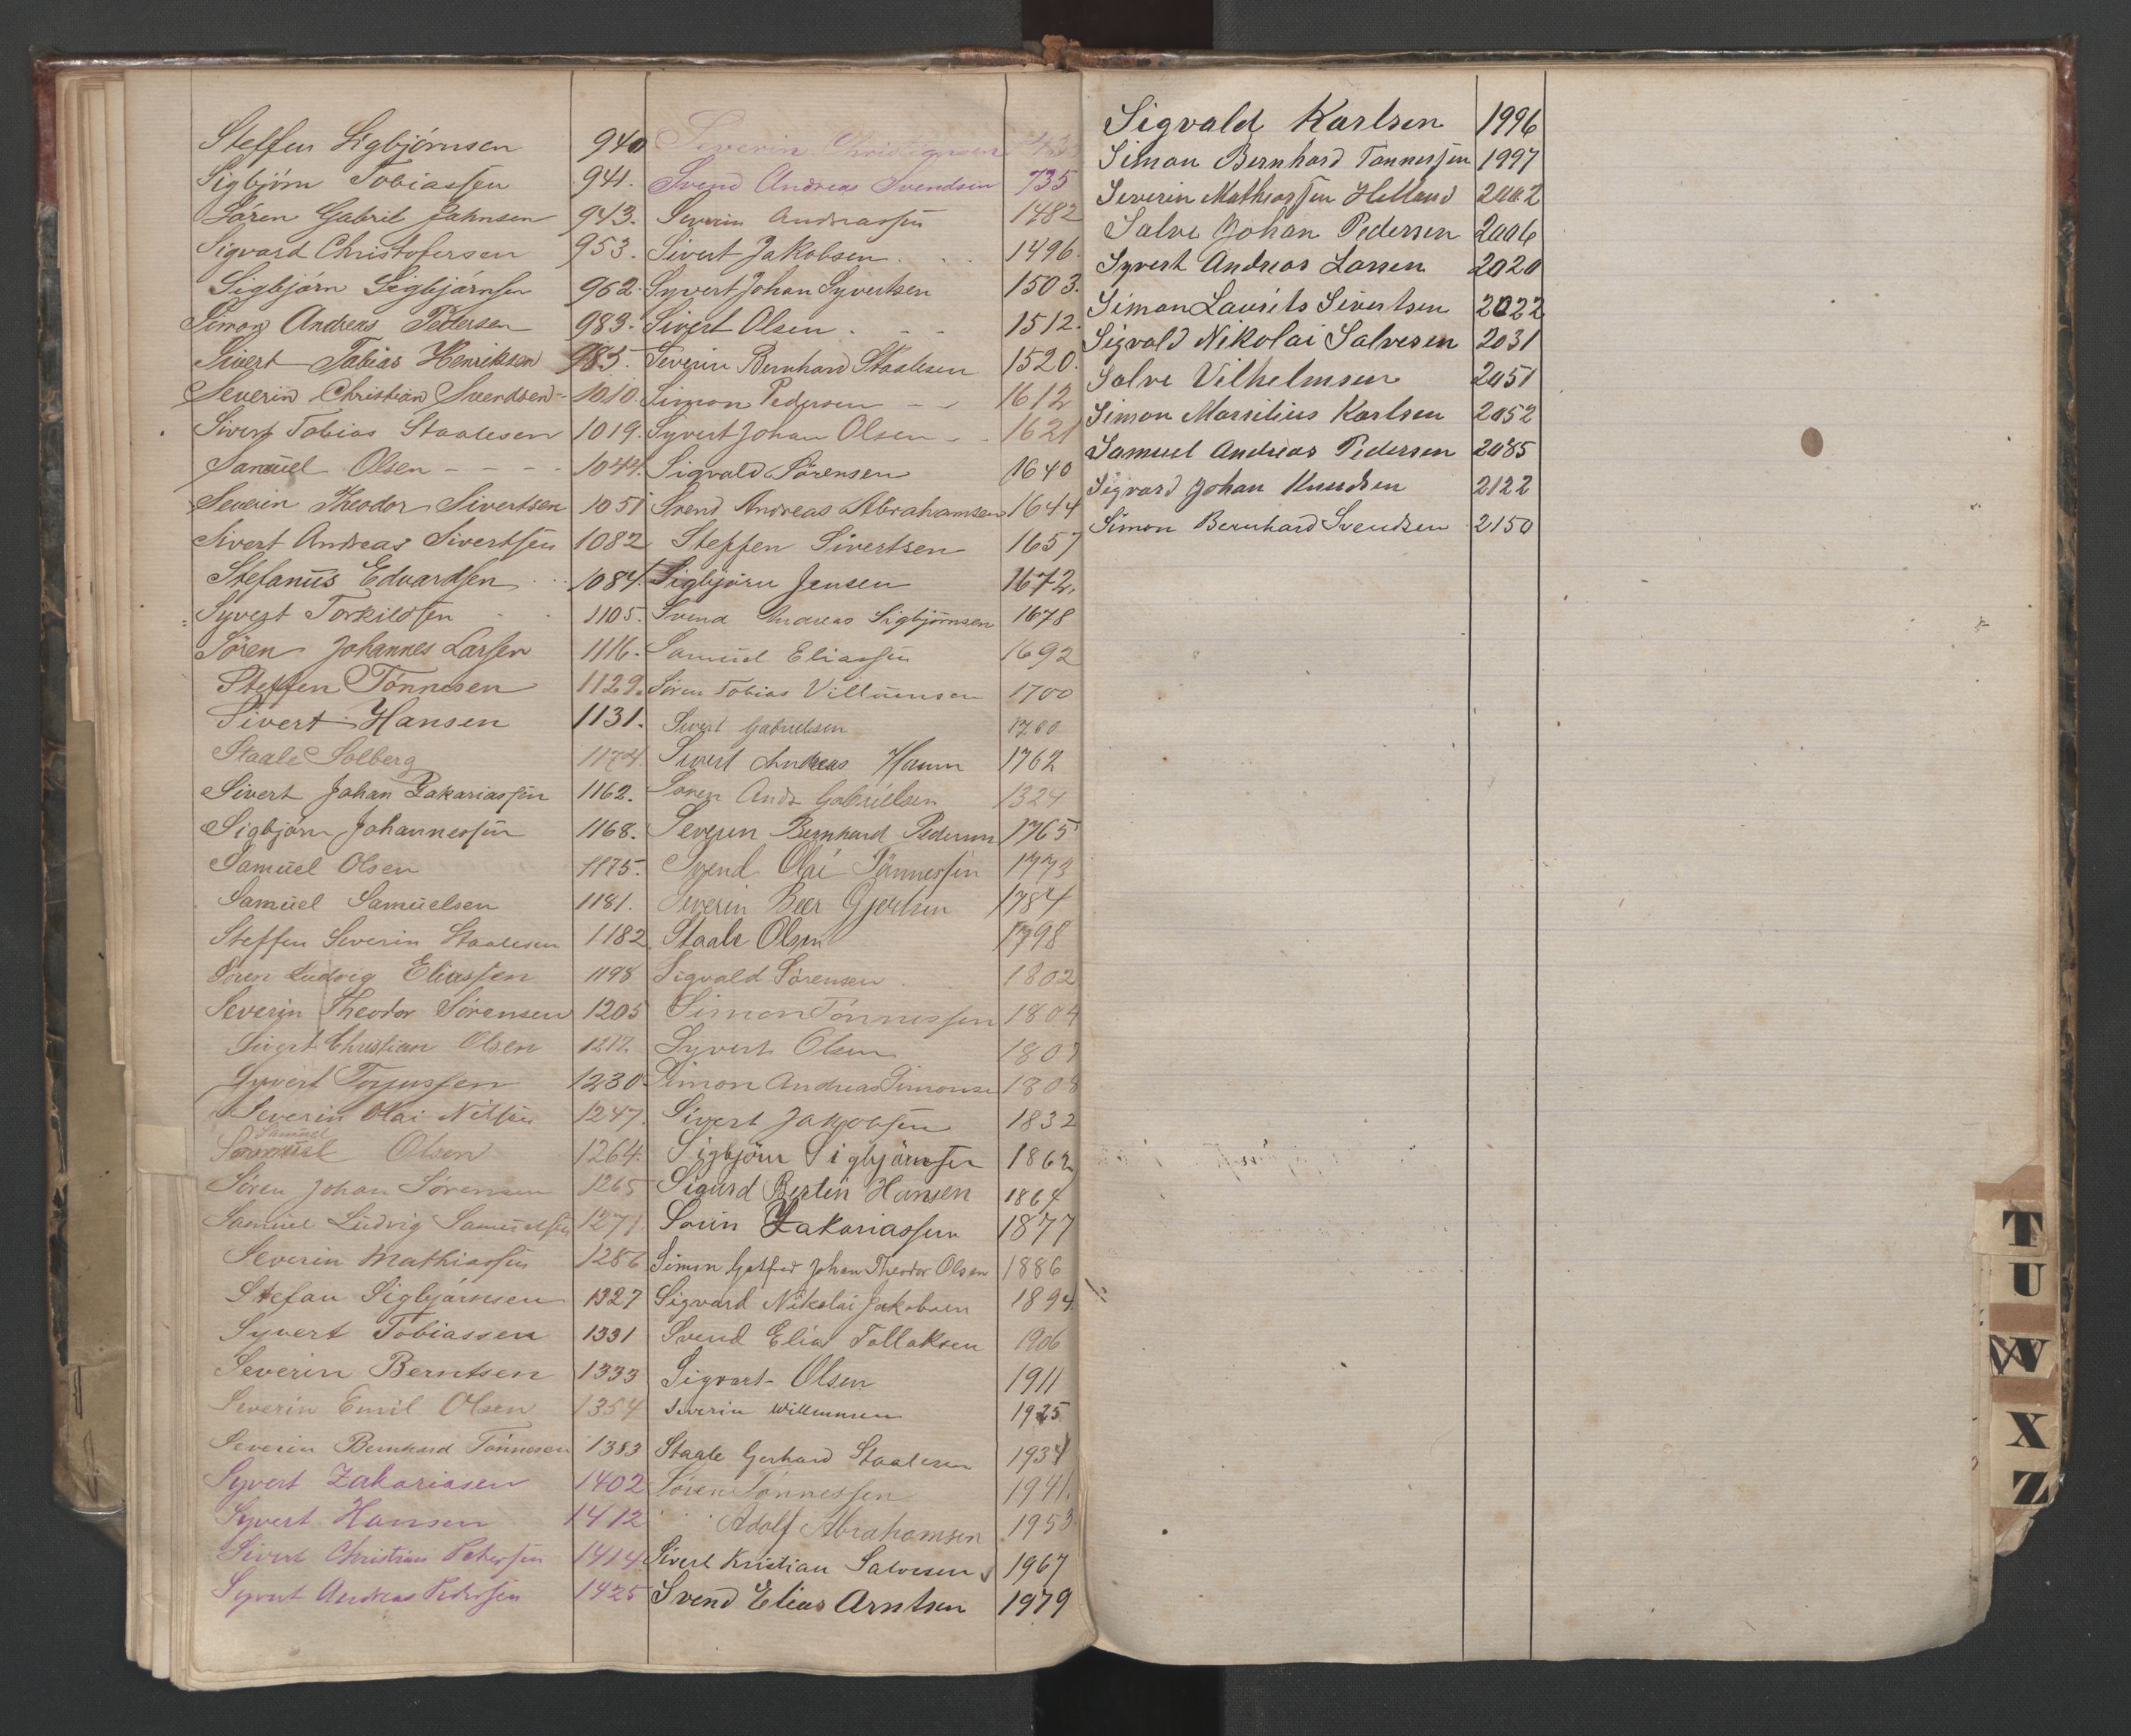 Steffen Sigbjörnsen 940
Sigbjörn Tobiassen 941.
Sören Gabriel Jahnsen 943.
Sigvard Christofersen 953.
Sigbjörn Sigbjörnsen 962.
Simon Andreas Pedersen 983.
Sivert Tobias Henriksen 985.
Severin Christian Svendsen 1010.
Sivert Tobias Staalesen 1019.
Samuel Olsen - - - - 1044.
Severin Theodor Sivertsen 1051
Sivert Andreas Sivertsen 1082
Stefanus Edvardsen 1084.
Syvert Torkildsen 1105.
Sören Johannes Larsen 1116.
Steffen Tönnesen 1129.
Sivert Hansen 1131.
Staale Solberg
Sivert Johan Zakariassen 1162.
Sigbjörn Johannessen 1168.
Samuel Olsen 1175.
Samuel Samuelsen 1181.
Steffen Severin Staalesen 1182
Sören Ludvig Eliassen 1198
Severin Theodor Sörensen 1205
Sivert Christian Olsen 1217.
Syvert Torjussen 1230
Severin Olai Nilsen 1247.
Samuel
Olsen 1264.
Sören Johan Sörensen 1265
Samuel Ludvig Samuelsen 1271.
Severin Mathiassen 1286
Stefan Sigbjörnsen 1327
Syvert Tobiassen 1331
Severin Berntsen 1333
Severin Emil Olsen 1354
Severin Bernhard Tönnesen 1383
Syvert Zakariasen 1402
Syvert Hansen 1412
Sivert Christian Petersen 1414
Syvert Andreas Pedersen 1425
Severin Christiansen
Svend Andreas Svendsen 735
Severin Andreassen 1482
Sivert Jakobsen . . . 1496.
Syvert Johan Syvertsen 1503.
Sivert Olsen . - - 1512.
Severin Bernhard Staalesen 1520.
Simon Pedersen - - 1612
Syvert Johan Olsen - - 1621
Sigvald Sörensen 1640
Svend Andreas Abrahamsen 1644
Steffen Sivertsen 1657
Sigbjörn Jensen 1672.
Svend Andreas Sigbjörnsen 1678
Samuel Eliassen 1692
Sören Tobias Villumsen 1700
Sivert Gabrielsen 1760
Sivert Andreas Haun 1762
Sören Andr Gabrielsen 1324
Severin Bernhard Pedersen 1765
Svend Olai Tönnessen 1773
Severin Beer Gjertsen 1784
Staale Olsen 1798
Sigvald Sörensen 1802
Simon Tönnessen 1804
Syvert Olsen 1807
Simon Andreas Simonse 1808
Sivert Jakobsen 1832
Sigbjörn Sigbjörnsen 1862
Sigurd Bertin Hansen 1864
Sörin Zakariassen 1877
Simon Gotfred Johan Theodor Olsen 1886
Sigvard Nikolai Jakobsen 1894.
Svend Elias Tallaksen 1906
Sigvart Olsen 1911
Severin Willumsen 1925
Staale Gerhard Staalesen 1934
Sören Tönnessen 1941.
" " Adolf Abrahamsen 1953.
Sivert Kristian Salvesen 1967
Svend Elias Arntsen 1979
Sigvald Karlsen 1996
Simon Bernhard Tönnessen 1997
Severin Mathiassen Helland 2002
Salve Johan Pedersen 2006
Syvert Andreas Larsen 2020
Simon Laurits Sivertsen 2022
Sigvald Nikolai Salvesen 2031
Salve Vilhelmsen 2051
Simon Marsilius Karlsen 2052
Samuel Andreas Pedersen 2085
Sigvard Johan Knudsen 2122
Simon Bernhard Svendsen 2150
T
U
W
X
Z